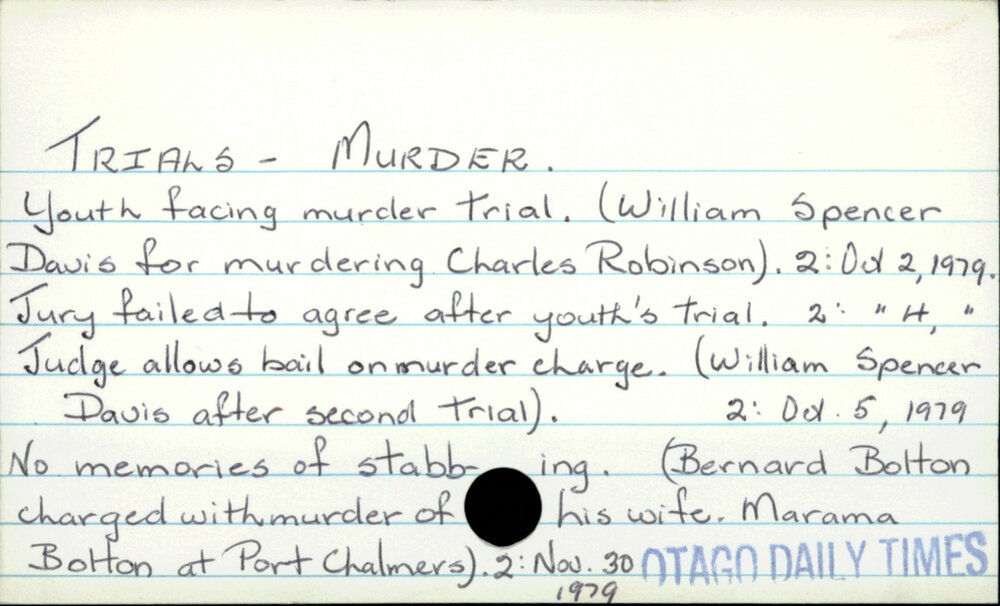 TRIALS - MURDER.
Youth facing murder trial. (William Spencer
Davis for murdering Charles Robinson). 2: Oct 2, 1979.
Jury failed to agree after youth's trial. 2: " 4, "
Judge allows bail on murder charge. (William Spencer
Davis after second trial). 2: Oct. 5, 1979
No memories of stabb-ing. (Bernard Bolton
charged with murder of his wife. Marama
Bolton at Port Chalmers). 2: Nov. 30 OTAGO DAILY TIMES
1979